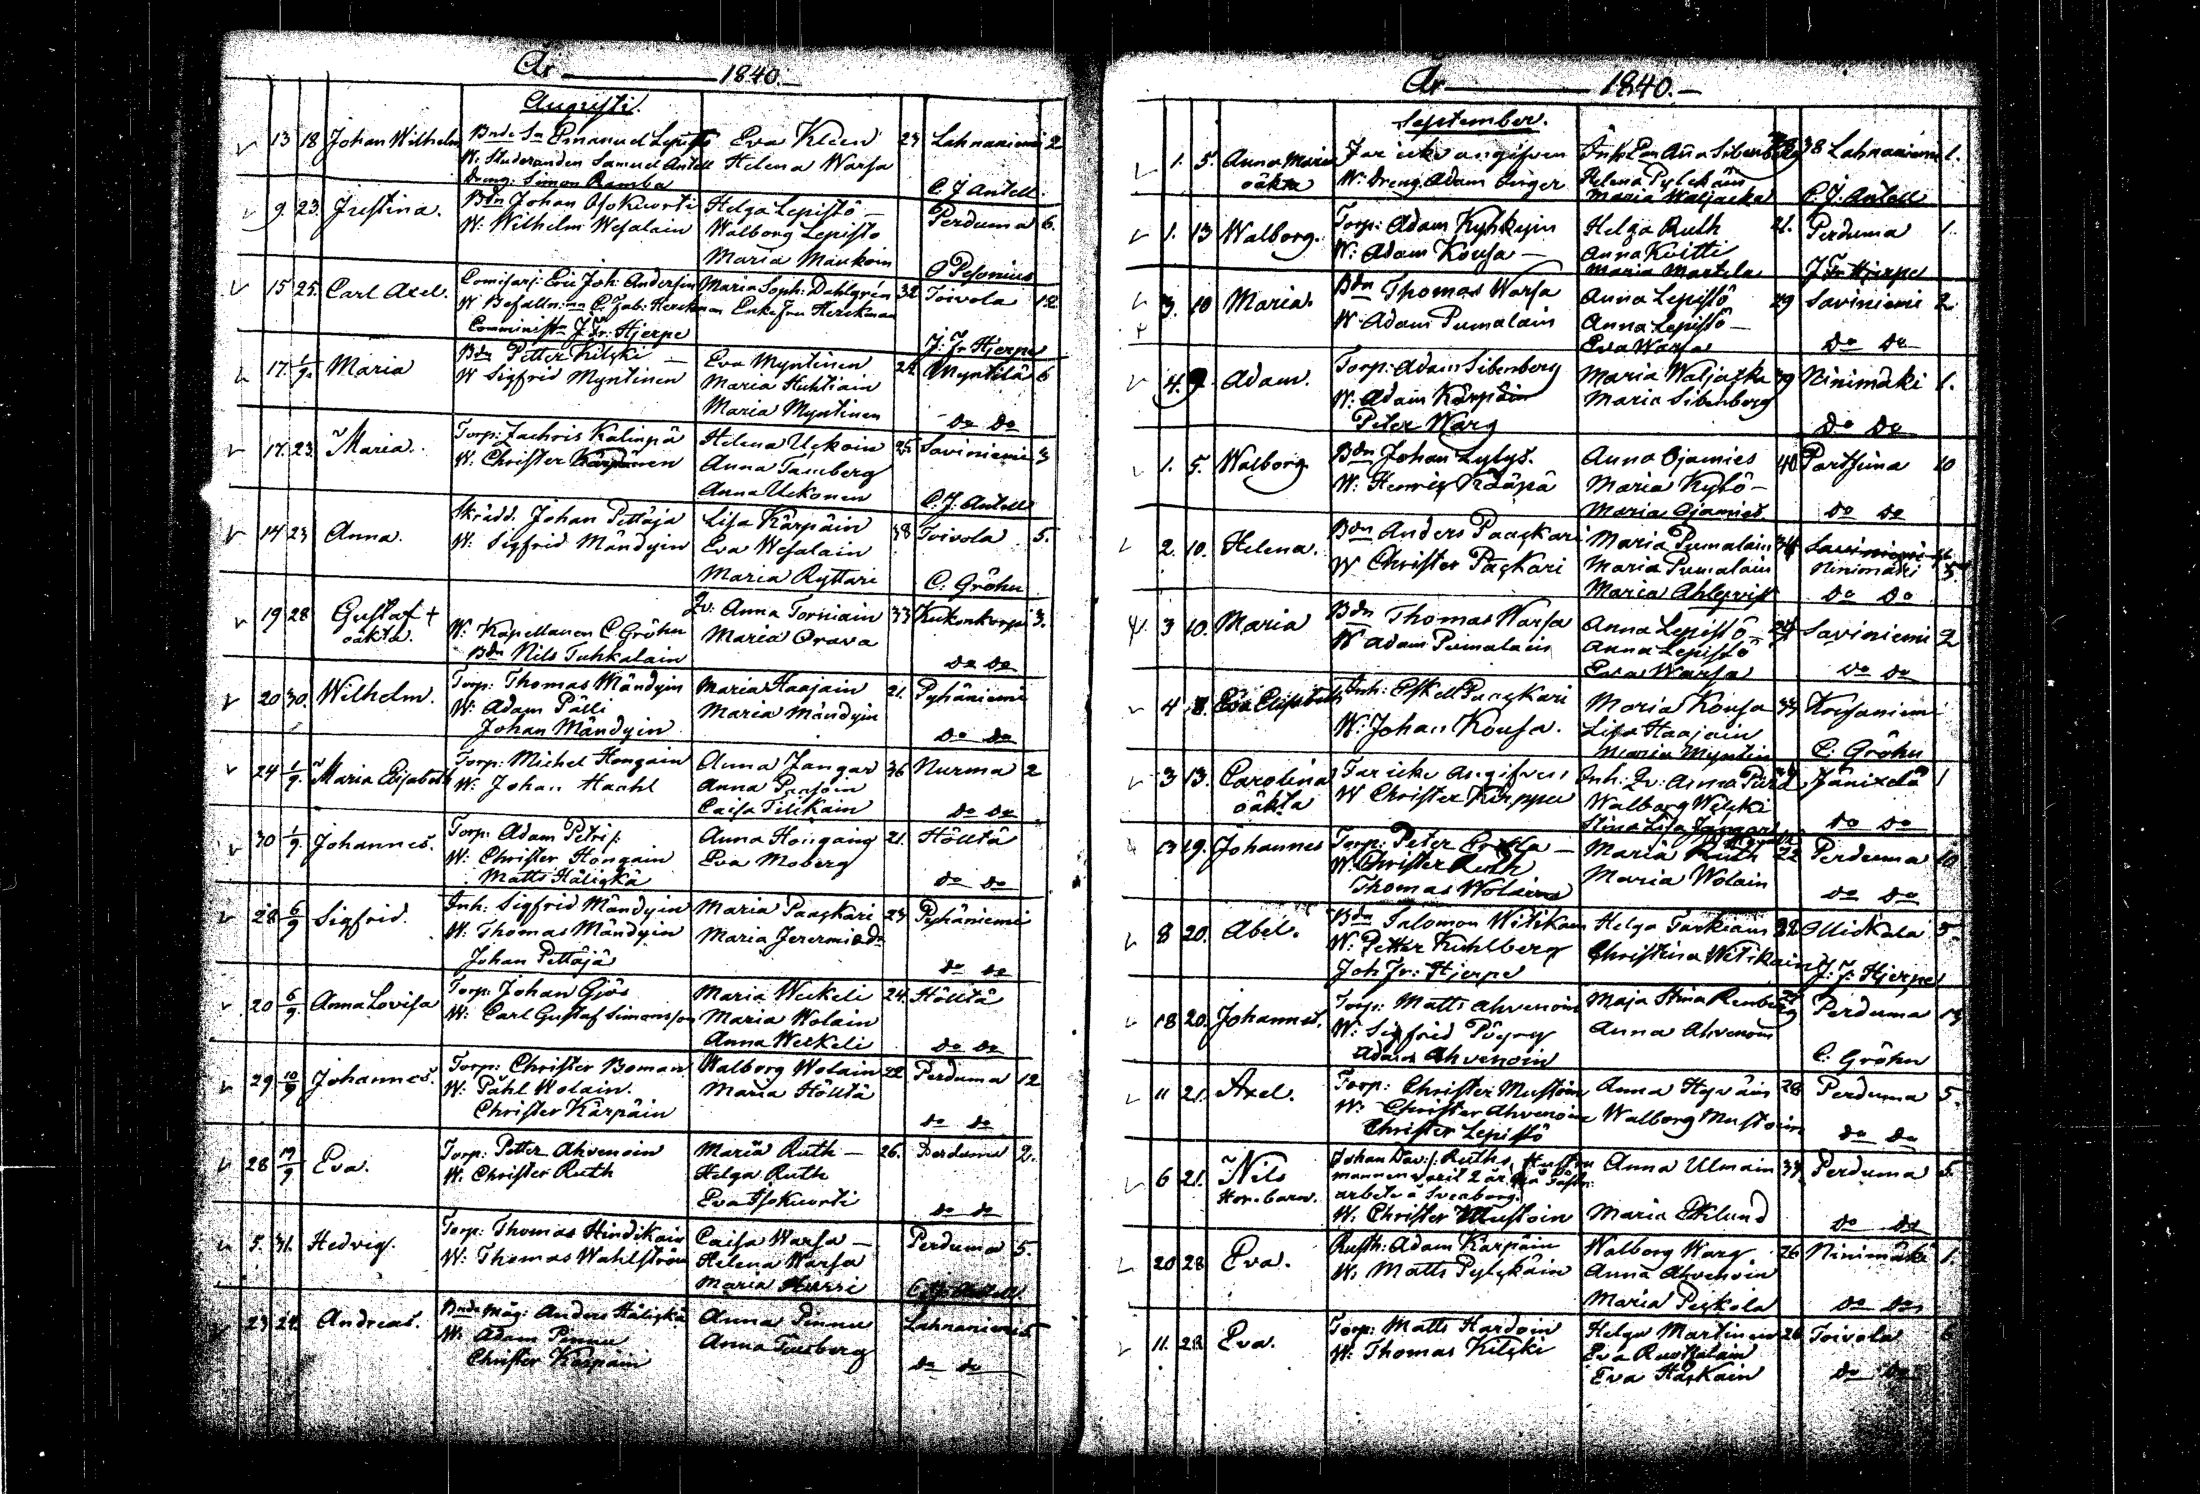 År 1840.
Augusti.
13 18 Johan Wilhelm Bnde Sn Emanuel Lepistö Eva Kleen 23 Lahnaniemi 2
W. Studeranden Samuel Antell Helena Warsa
Dreng: Simon Ramba C. J. Antell
9. 23. Justina. Bdn Johan Helga Lepistö Perduma 6.
W: Wilhelm Wesalain Walborg Lepistö
Maria Maukoin O Pesonius
15 25. Carl Axel. Joh: Andersin Maria Soph: Dahlgrén 32 Toivola 12
W C. Jab: Herckman Enkefru Herckman
J. Fr: Hjerpe J. Fr Hjerpe
17. 1/9. Maria Bdn Petter Kilski Eva Myntinen 24 Myntilä 6
W Sigfrid Myntinen Maria Huhtiain
Maria Myntinen Do Do
17. 23. Maria. Torp: Zachris Kalinpä Helena Uckoin 25 Saviniemi 3
W. Christer Kärpänen Anna Tamberg
Anna Uckonen C. J. Antell
14 23 Anna. Skrädd. Johan Pettäjä Lisa Kärpäin 38 Toivola 5.
W. Sigfrid Mändyin Eva Wesalain
Maria Ryttari C. Gröhn
19 28 Gustaf + Qv: Anna Torniain 33 3.
oäkta. W: Kapellanen C Gröhn Maria Orava
Bdn Nils Tuhkalain Do Do
20 30. Wilhelm. Torp: Thomas Mändyin Maria Haajain 21. Pyhäniemi
W: Adam Pälli Maria Mändyin
Johan Mändyin Do Do
24 1/9. Maria Elisabeth Torp: Michel Hongain Anna Zangar 36 Nurma 2
W: Johan Haahl Anna
Caisa Tilikain Do Do
30 1/9. Johannes. Torp: Adam Petri s: Anna Hongain 21. Höltä
W: Christer Hongain Eva Moberg
Matts Häliskä Do Do
28 6/9 Sigfrid. Inh: Sigfrid Mändyin Maria Paaskari 23 Pyhäniemi
W. Thomas Mändyin Maria
Johan Pettäjä Do Do
20 6/9 Anna Lovisa Torp: Johan Gjös Maria Werkeli 24 Höltä
W: Carl Gustaf Simonsson Maria Wolain
Anna Werkeli Do Do
29 10/9 Johannes. Torp: Christer Boman Walborg Wolain 22 Perduma 12
W: Påhl Wolain. Maria Höltä
Christer Kärpäin Do Do
28 19/9 Eva. Torp: Petter Ahvenoin Maria Ruth 26. Perduma 2.
W: Christer Ruth Helga Ruth
Eva Do Do
5. 31. Hedvig. Torp: Thomas Hindikain Caisa Warsa Perduma 5.
W: Thomas Wahlström Helena Warsa
Maria Hurri
23 24. Andreas. Bnde Måg: Anders Häliskä Anna Pennu Lahnaniemi 5
W: Adam Pennu Anna Tamberg
Christer Kärpäin Do Do
År 1840.
September.
1. 5. Anna Maria Far icke angifven Anna Sibenberg 38 Lahnaniemi 1.
oäkta W: Dreng. Adam Unger Helena Pylckäin
Maria Waljacka C. J. Antell
1. 13 Walborg. Torp: Adam Kyhkyin Helga Ruth 21. Perduma 1.
W: Adam Kousa Anna Kvitti
Maria Martela J Fr Hjerpe
3. 10 Maria. Bdn Thomas Warsa Anna Lepistö 29 Saviniemi 2
W. Adam Pumalain Anna Lepistö
Eva Warsa Do Do
4. Adam. Torp: Adam Sibenberg Maria Waljacka 39 Ninimäki 1.
W: Adam Kärpäin Maria Sibenberg
Peter Warg Do Do
1. 5. Walborg Bdn Johan Lylys. Anna Ojamies 40 Partsima 10
W: Henric Kääpä Maria Kylö
Maria Ojamies Do Do
2. 10. Helena. Bdn Anders Paaskari Maria Pumalain 34 Saviniemi
W Christer Paskari Maria Pumalain Ninimäki 5
Maria Ahlqvist Do Do
3 10. Maria Bdn Thomas Warsa Anna Lepistö 29 Saviniemi 2
W Adam Pumalain Anna Lepistö
Eva Warsa Do Do
4 8. Eva Elisabeth Inh: Eskell Paaskari Maria Kousa 33 Korsaniemi
W: Johan Kousa. Lisa Haajain
Maria Myntin C: Gröhn
3 13. Carolina Far icke angifven Inh: Qv: Anna Jänixelä 1
oäkta W Christer Kärppä Walborg Wilski
Stina Lisa Zangar Do Do
13 19. Johannes Torp: Peter Maria Ruth 22 Perduma 10
W: Christer Ruth Maria Wolain
Thomas Wolain Do Do
8 20. Abel. Bdn Salomon Witikain Helga Tarkiain 32 Ollickala 5.
W: Petter Kuhlberg Christina Witikain
Joh Fr: Hjerpe J: F: Hjerpe
18 20. Johannes. Torp: Matts Ahvenoin Maja Stina Renberg Perduma 13
W: Sigfrid Pöyry Anna Ahvenoin
Adam Ahvenoin C: Gröhn
11 21. Axel. Torp: Christer Mustoin Anna Hyväin 28 Perduma 5.
W: Christer Ahvenoin Walborg Mustoin
Christer Lepistö Do Do
6 21. Nils Johan Dav: s: Ruths Hustru Anna Ulmain 33 Perduma 5.
Hor. barn. mannen varit 2 år på
arbete å Sveaborg.
W: Christer Mustoin Maria Eklund Do Do
20 28 Eva. Rusth: Adam Kärpäin Walborg Warg 26 Ninimäki 1.
W: Matts Pylckäin Anna Ahvenoin
Maria Peskola Do Do
11. 28 Eva. Torp: Matts Hardoin Helga Martinen 26 Toivola 6
W: Thomas Kilski Eva
Eva Häskäin Do Do